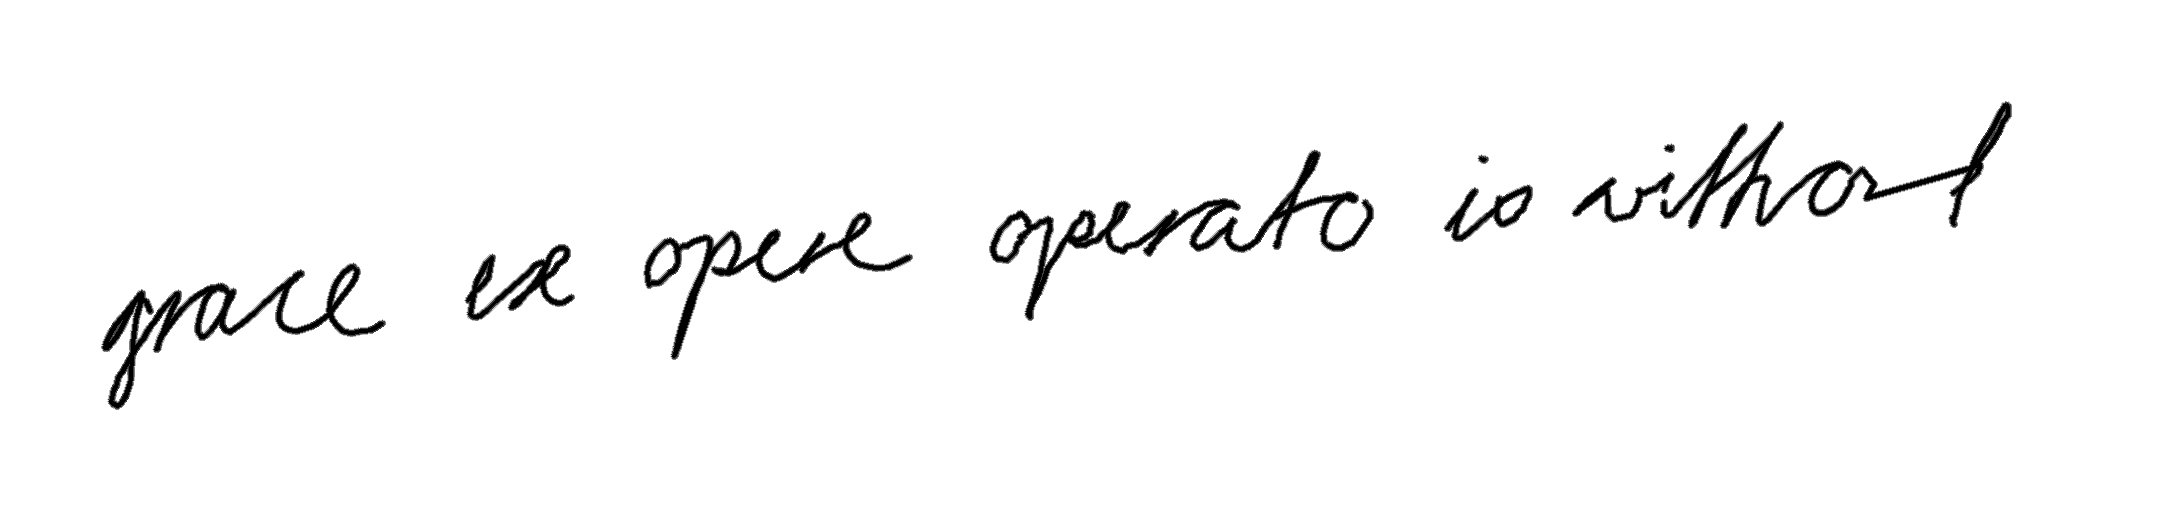 grace ex opere operato is without